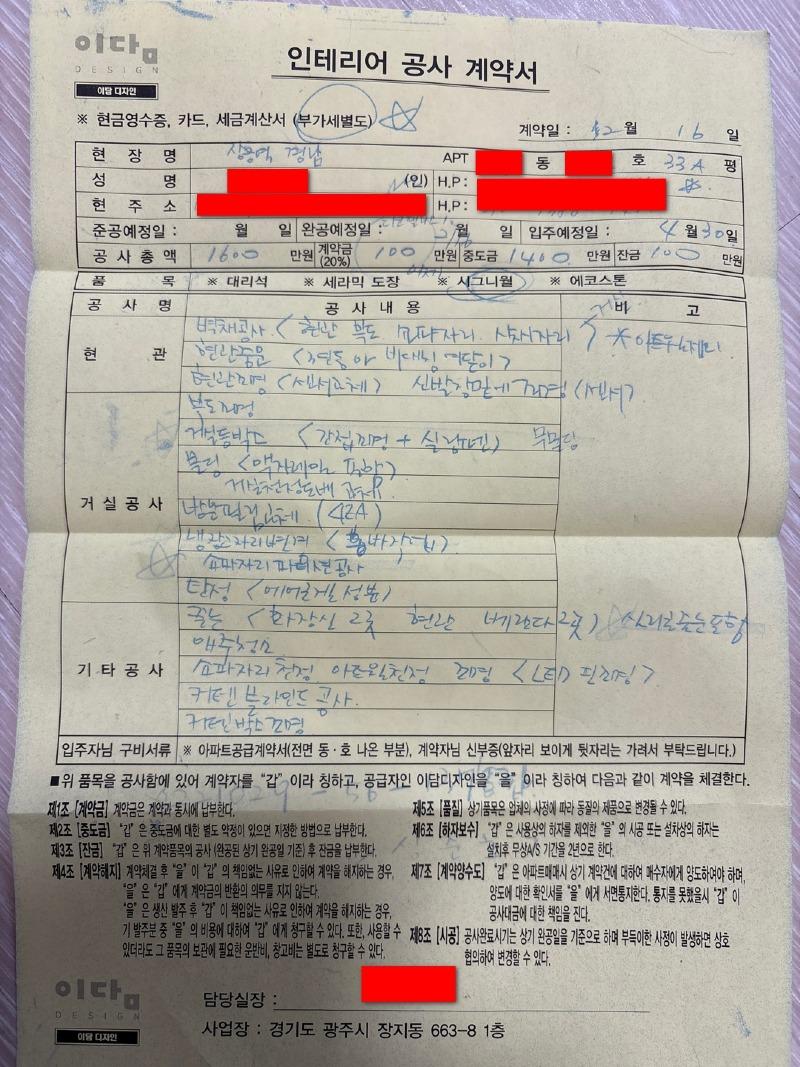 이다ㅁ
DESIGN
이담 디자인
인테리어 공사 계약서
※ 현금영수증, 카드, 세금계산서 (부가세별도)
계약일 : 12월 16일
현장명 경남 APT 동 호 33A 평
성명 (인) H.P:
현주소 H.P:
준공예정일 : 월 일 완공예정일 : 월 일 입주예정일 : 4월 30일
공사총액 1600 만원 계약금 (20%) 100 만원 중도금 1400 만원 잔금 100 만원
품목 ※ 대리석 ※ 세라믹 도장 ※ 시그니월 ※ 에코스톤
공사명 공사내용 비고
현관
벽체공사 < 현관 복도 소파자리
현관중문 <3연동 아 여닫이>
현관조명 (센서교체) 신발장밑에 조명 (센서)
복도조명
거실공사
거실등박스 (간접조명 + 실링팬) 무몰딩
거실천정도배
(42A)
냉장고자리변경
소파자리 공사
탄성
기타공사
줄눈 현관 베란다 2곳) 줄눈포함
입주청소
소파자리천정 아트월천정 조명 <LED >
커텐 블라인드 공사.
커텐박스조명
입주자님 구비서류 ※ 아파트공급계약서(전면 동·호 나온 부분), 계약자님 신부증(앞자리 보이게 뒷자리는 가려서 부탁드립니다.)
■위 품목을 공사함에 있어 계약자를 “갑” 이라 칭하고, 공급자인 이담디자인을 “을” 이라 칭하여 다음과 같이 계약을 체결한다.
제1조 [계약금] 계약금은 계약과 동시에 납부한다.
제2조 [중도금] “갑” 은 중도금에 대한 별도 약정이 있으면 지정한 방법으로 납부한다.
제3조 [잔금] “갑” 은 위 계약품목의 공사 (완공된 상기 완공일 기준) 후 잔금을 납부한다.
제4조 [계약해지] 계약체결 후 “을” 이 “갑” 의 책임없는 사유로 인하여 계약을 해지하는 경우,
“을” 은 “갑” 에게 계약금의 반환의 의무를 지지 않는다.
“을” 은 생산 발주 후 “갑” 이 책임없는 사유로 인하여 계약을 해지하는 경우,
기 발주분 중 “을” 의 비용에 대하여 “갑” 에게 청구할 수 있다. 또한, 사용할 수
있더라도 그 품목의 보관에 필요한 운반비, 창고비는 별도로 청구할 수 있다.
제5조 [품질] 상기품목은 업체의 사정에 따라 동질의 제품으로 변경될 수 있다.
제6조 [하자보수] “갑” 은 사용상의 하자를 제외한 “을” 의 시공 또는 설치상의 하자는
설치후 무상A/S 기간을 2년으로 한다.
제7조 [계약양수도] “갑” 은 아파트매매시 상기 계약건에 대하여 매수자에게 양도하여야 하며,
양도에 대한 확인서를 “을” 에게 서면통지한다. 통지를 못했을시 “갑” 이
공사대금에 대한 책임을 진다.
제8조 [시공] 공사완료시기는 상기 완공일을 기준으로 하며 부득이한 사정이 발생하면 상호
협의하여 변경할 수 있다.
이다ㅁ
DESIGN
이담 디자인
담당실장 :
사업장 : 경기도 광주시 장지동 663-8 1층